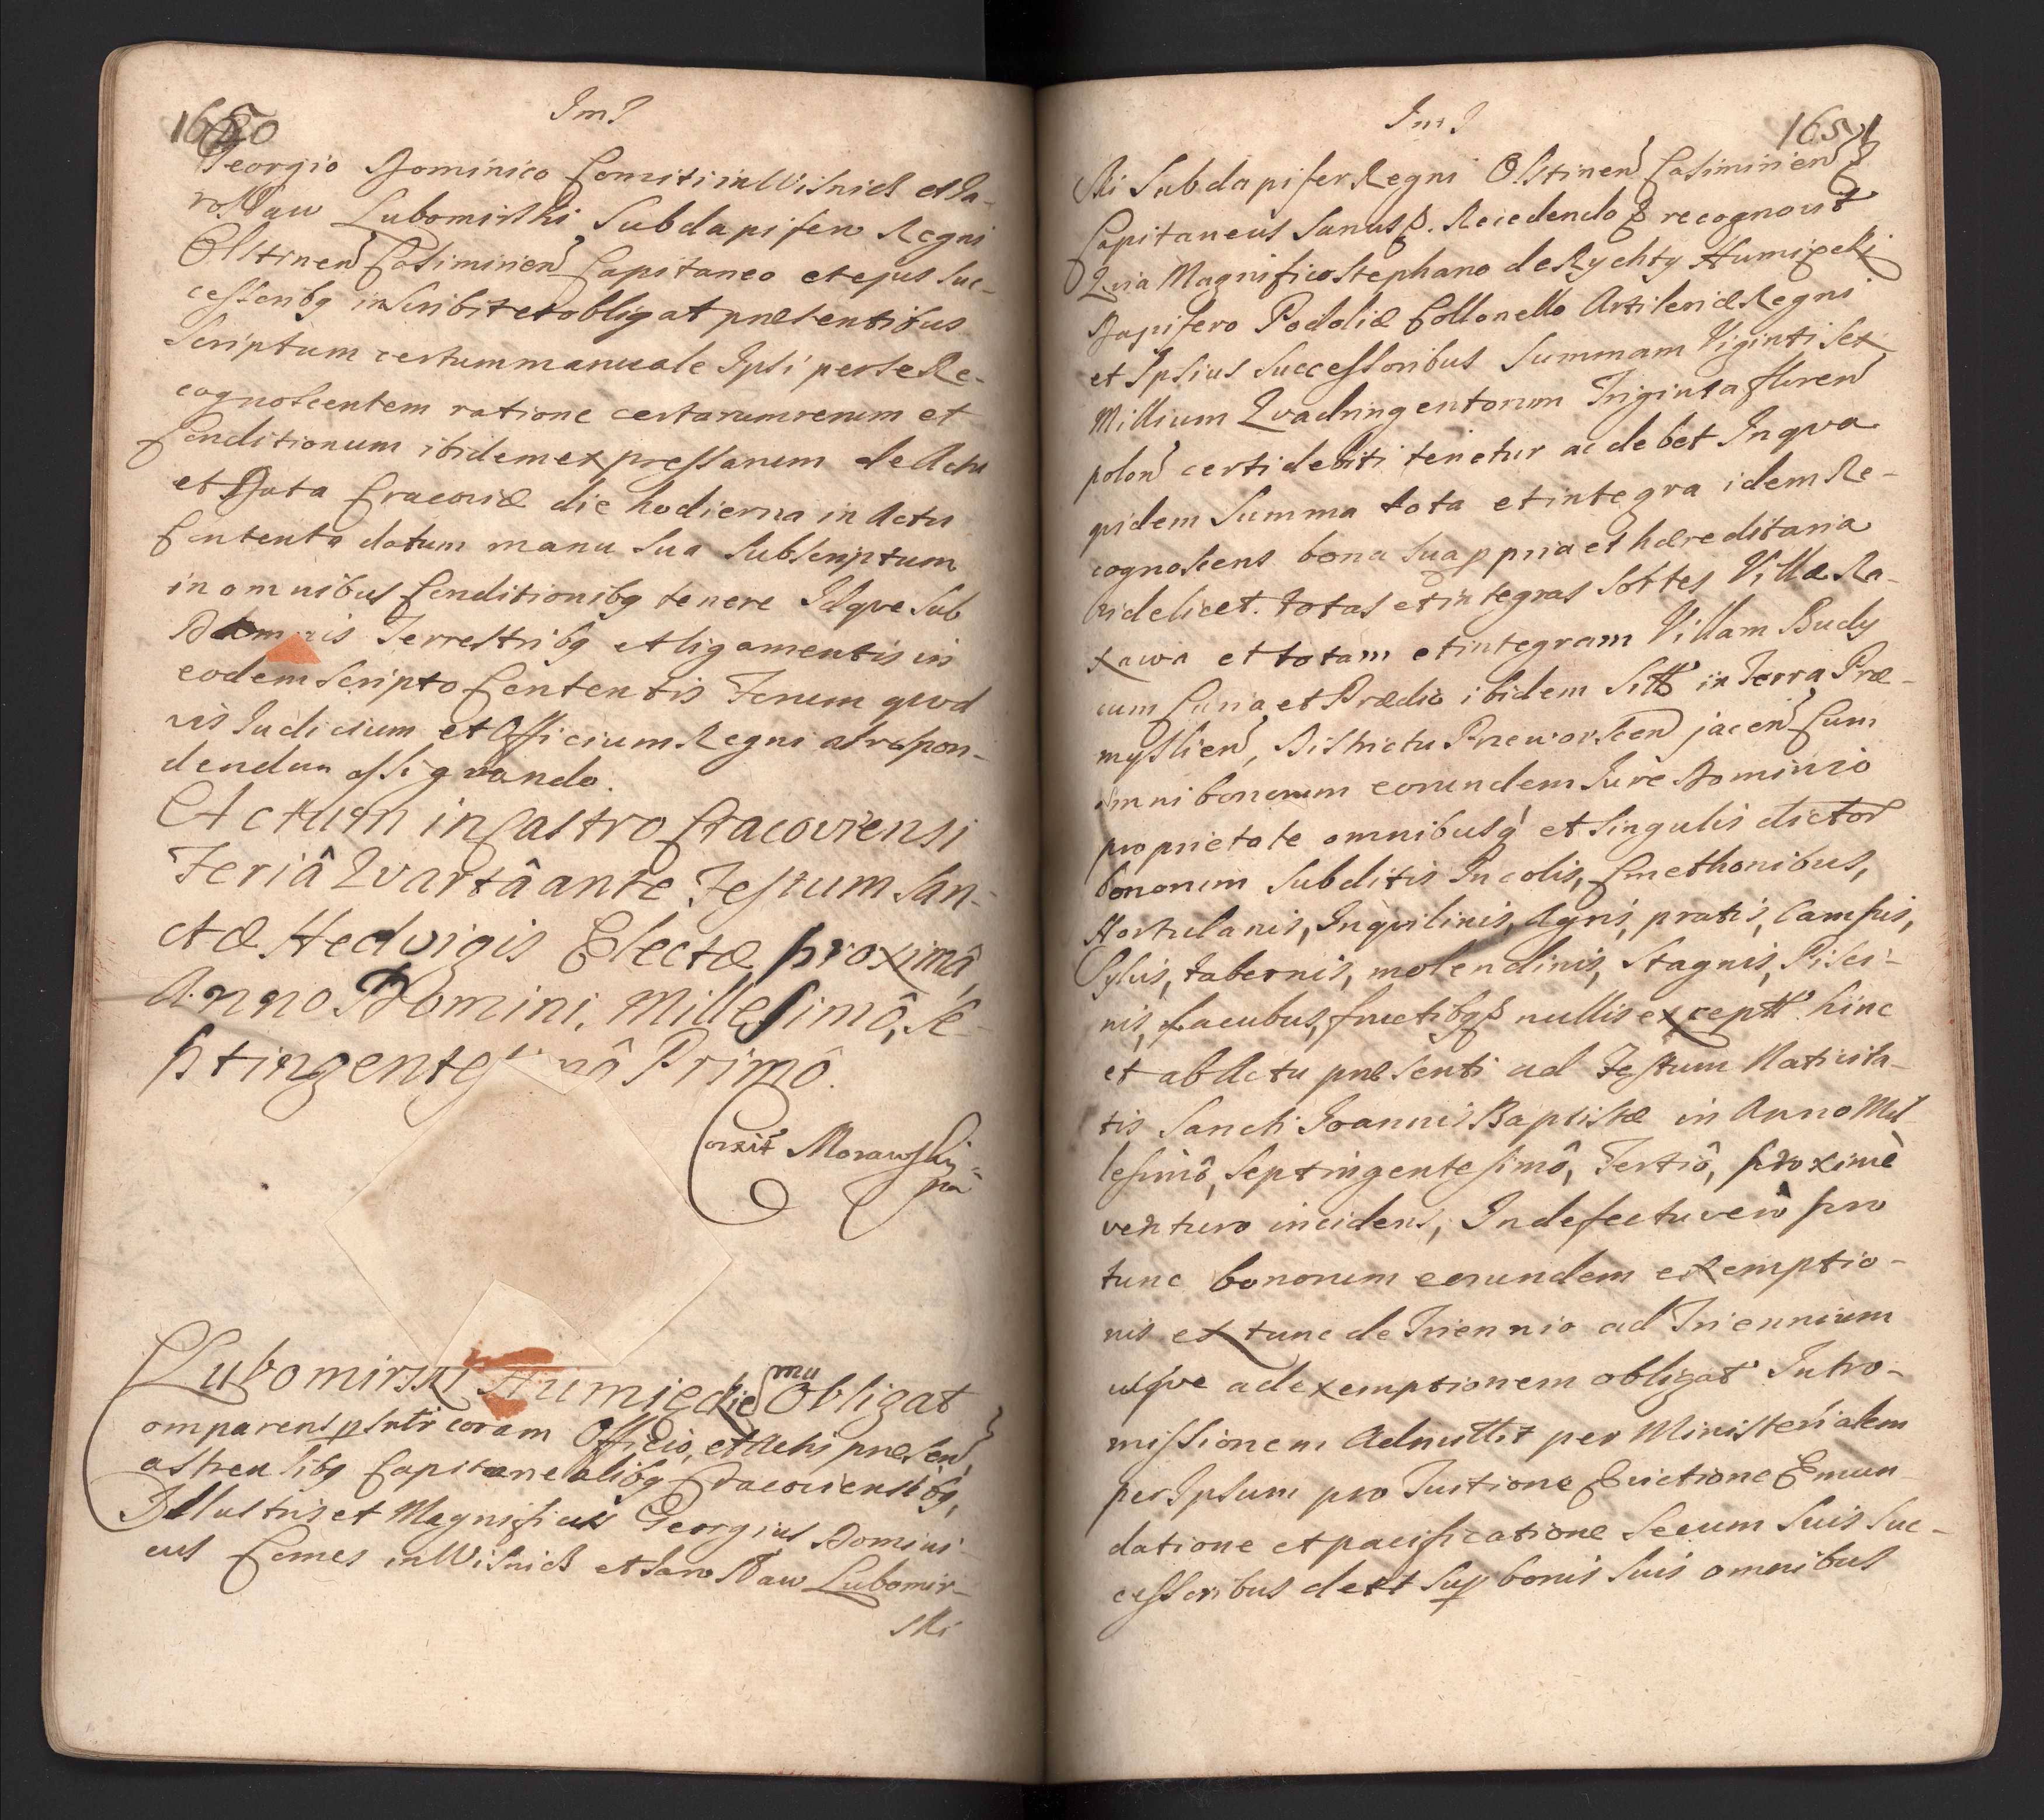 1650
Im?
Georgio Dominico Comiti in Wisnicz et Ja-
roslaw Lubomirski Subdapifero Regni
Olstinen Casimirien Capitaneo et ejus Suc-
cessoribq inscribit et obligat præsentibus
Scriptum certum manuale Ipsi per se Re-
cognoscentem ratione certarum rerum et
Conditionum ibidem expressarum de Actu
et Data Cracoviæ die hodierna in Actu
Contenta datum manu sua subscriptum
in omnibus Conditionibq tenere Idqve sub
Damnis Terrestribq et ligamentis in
eodem Scripto Contentis Forum qvod
vis Judicium et Officium Regni ad respon-
dendum assignando.
Actum in Castro Cracoviensi
Feriâ Qvartâ ante Festum San-
ctæ Hedvigis Electæ proximâ,
Anno Domini, Millesimô, Se-
ptingentesimô Primô.
Morawski
Lubomirski Humieckiemu Obligat
omparens psntr coram Officio, et Actis præsen,
astren sibq Capitanealibq Cracoviensibq,
Illustris et Magnificus Georgius Domini-
cus Comes in Wisnicz et Jaroslaw Lubomir-
ski
Im?
1651
ski Subdapifer Regni Olstinen Casimirien
Capitaneus Sanus p. Recedendo p recognovit
Qvia Magnifico Stephano de Rychty Humięcki
Dapifero Podoliæ Collonello Artileriæ Regni
et Ipsius Successoribus Summam Viginti Sex
Millium Qvadringentorum Triginta floren
polon certi debiti tenetur ac debet In qva
qvidem Summa tota et integra idem Re-
cognoscens bona sua ppria et hæreditaria
videlicet. totas et integras Sortes Villæ Ra-
xawa et totam et integram Villam Budy
cum Curia et Prædio ibidem Sitt in Terra Præ-
myslien, Districtu Przeworscen jacen Cum
omni bonorum eorundem Jure Dominio
proprietate omnibusq et singulis dictor
bonorum Subditis Incolis, Cmethonibus,
Hortulanis, Inqvilinis, Agris, pratis, Campis,
Sylvis, tabernis, molendinis, Stagnis, Pisci-
nis, Lacubus, fructibq p nullis exceptt hinc
et ab Actu præsenti ad Festum Nativita-
tis Sancti Joannis Baptistæ in Anno Mil-
lesimô, Septingentesimô, Tertiô, proximè
venturo incidens, In defectu verò pro
tunc bonorum eorundem exemptio-
nis ex tunc de Triennio ad Triennium
usqve ad exemptionem obligat Intro-
missionem Admittit per Ministerialem
per Ipsum pro Tuitione Evictione Emun-
datione et pacificatione Secum Suis Suc-
cessoribus de et Sup bonis Suis omnibus